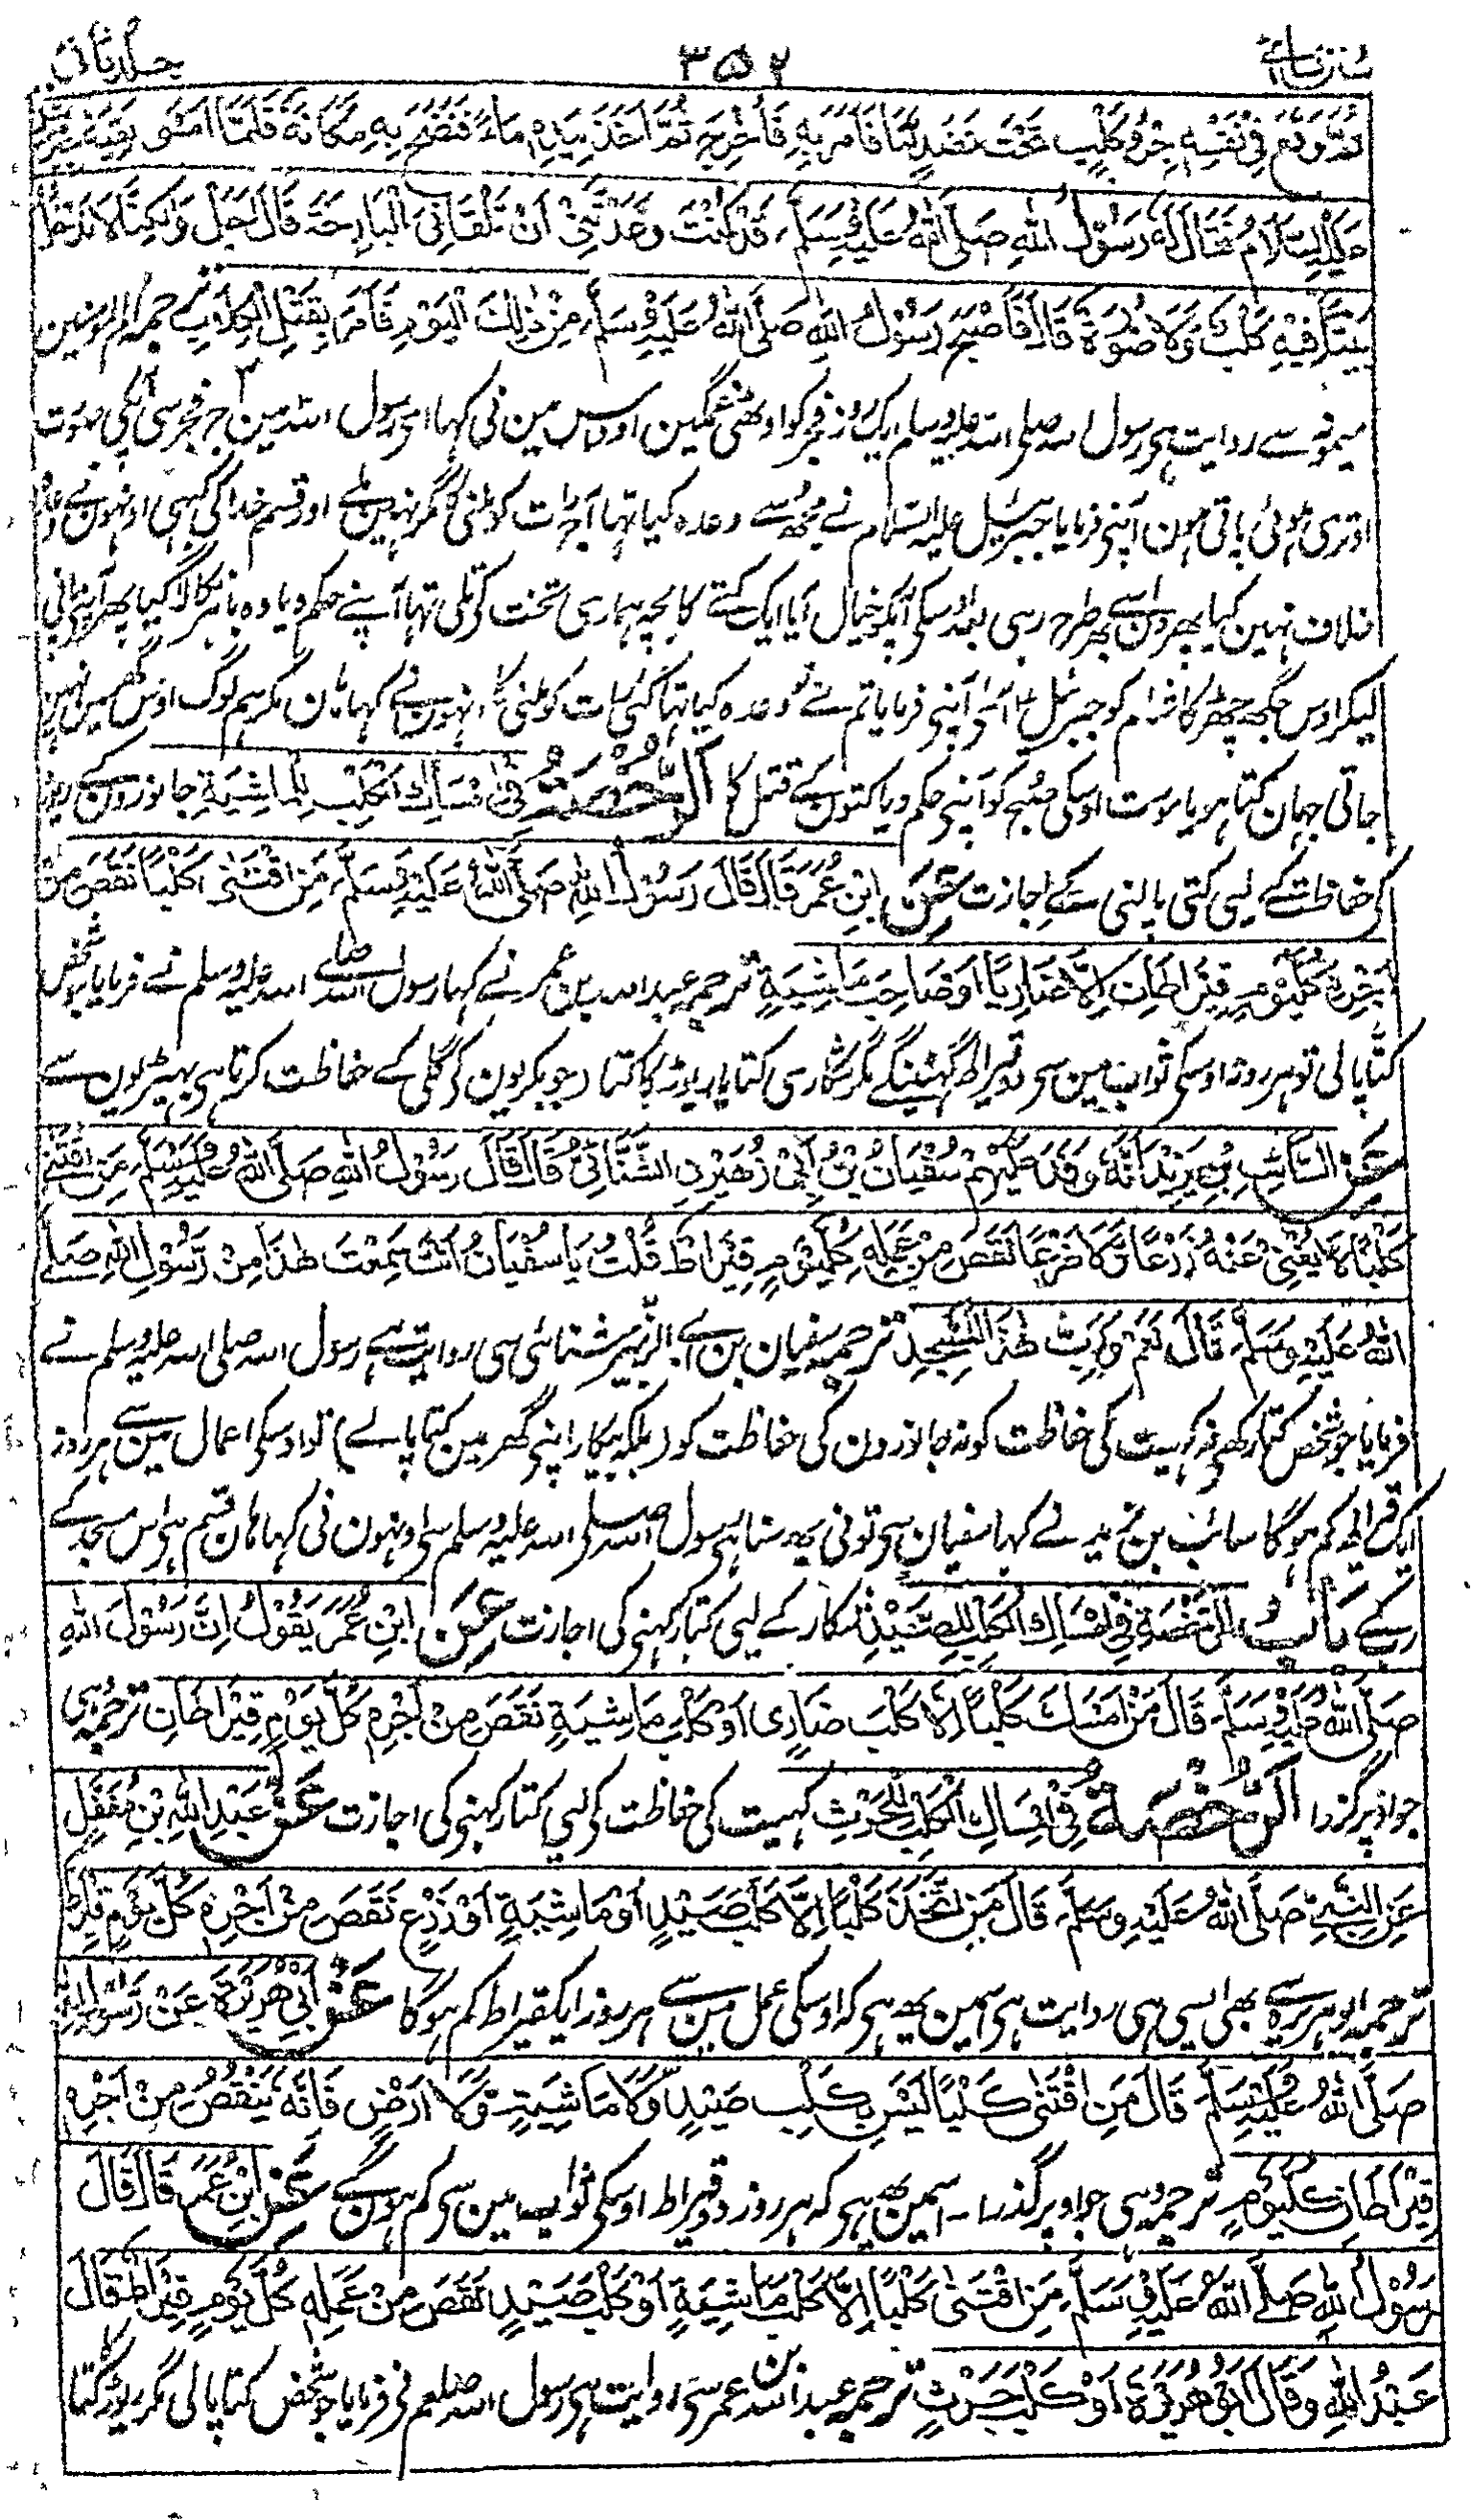 سنن نسائی ۳۵۲ جلد ثانی
ثُمَّ وَقَعَ فِي نَفْسِهِ جِرْوُ كَلْبٍ تَحْتَ نَضَدٍ لَنَا فَأَمَرَ بِهِ فَأُخْرِجَ ثُمَّ أَخَذَ بِيَدِهِ مَاءً فَنَضَحَ بِهِ مَكَانَهُ فَلَمَّا أَمْسَى لَقِيَهُ جِبْرِيلُ
عَلَيْهِ السَّلَامُ فَقَالَ لَهُ رَسُولُ اللهِ صَلَّى اللهُ عَلَيْهِ وَسَلَّمَ قَدْ كُنْتَ وَعَدْتَنِي أَنْ تَلْقَانِيَ الْبَارِحَةَ قَالَ أَجَلْ وَلَكِنَّا لَا نَدْخُلُ
بَيْتًا فِيهِ كَلْبٌ وَلَا صُورَةٌ قَالَ فَأَصْبَحَ رَسُولُ اللهِ صَلَّى اللهُ عَلَيْهِ وَسَلَّمَ مِنْ ذٰلِكَ الْيَوْمِ فَأَمَرَ بِقَتْلِ الْكِلَابِ ترجمہ ام المؤمنین
میمونہ سے روایت ہی رسول اللہ صلی اللہ علیہ وسلم ایک روز فجر کو اوٹھی غمگین اوداس مین نی کہا ای رسول اللہ مین آج فجر سی آپکی صورت
اوتری ہوئی پاتی ہون آپنی فرمایا جبرئیل علیہ السلام نے مجھ سے وعدہ کیا تہا آج رات کو ملنی کا مگر نہین ملے اور قسم خدا کی کبھی اونہون نے وعدہ
خلاف نہین کیا پھر دن اسے طرح رہی بعد اوسکی آپکو خیال آیا ایک کتے کا بچہ ہماری تخت کی تلی تہا آپنے حکم دیا وہ باہر نکالا گیا پھر آپنی پانی
لیکر اوس جگہہ چھڑکا شام کو جبرئیل ع آئی آپنی فرمایا تم نے تو وعدہ کیا تہا گئی رات کو ملنی کا اونہون نے کہا ہان مگر ہم لوگ اوس گھر مین نہین
جاتی جہان کتا ہو یا مورت اوسکی صبح کو آپنی حکم دیا کتون کے قتل کا اَلرُّخْصَةُ فِي اِمْسَاكِ الْكَلْبِ لِلْمَاشِيَةِ جانورون کے ریوڑ
کی حفاظت کے لیی کتی پالنی کے اجازت عَنِ ابْنِ عُمَرَ قَالَ قَالَ رَسُولُ اللهِ صَلَّى اللهُ عَلَيْهِ وَسَلَّمَ مَنِ اقْتَنٰى كَلْبًا نَقَصَ مِنْ
اَجْرِهِ كُلَّ يَوْمٍ قِيْرَاطَانِ اِلَّا ضَارِيًا اَوْ صَاحِبَ مَاشِيَةٍ ترجمہ عبداللہ بن عمر نے کہا رسول اللہ صلے اللہ علیہ وسلم نے فرمایا جو شخص
کتا پالی تو ہر روز اوسکی ثواب مین سی دو قیراط گہٹینگے مگر شکاری کتا یا ریوڑ کا کتا (جو بکریون کی گلی کے حفاظت کرتا ہی بہیڑیون سے
عَنِ السَّائِبِ بْنِ يَزِيْدَ اَنَّهُ وَفَدَ عَلَيْهِمْ سُفْيَانُ بْنُ اَبِيْ زُهَيْرِنِ الشَّنَائِيُّ قَالَ قَالَ رَسُوْلُ اللهِ صَلَّى اللهُ عَلَيْهِ وَسَلَّمَ مَنِ اقْتَنٰى
كَلْبًا لَا يُغْنِيْ عَنْهُ زَرْعًا وَّلَا ضَرْعًا نَقَصَ مِنْ عَمَلِهِ كُلَّ يَوْمٍ قِيْرَاطٌ قُلْتُ يَا سُفْيَانُ اَنْتَ سَمِعْتَ هٰذَا مِنْ رَسُوْلِ اللهِ صَلَّى
اللهُ عَلَيْهِ وَسَلَّمَ قَالَ نَعَمْ وَرَبِّ هٰذَا الْمَسْجِدِ ترجمہ سفیان بن ابے الزہیر شنائی سی روایت ہے رسول اللہ صلی اللہ علیہ وسلم نے
فرمایا جو شخص کتا رکھی نہ کہیت کی حفاظت کو نہ جانورون کی حفاظت کو (بلکہ بیکار اپنی گھر مین کتا پالے) تو اوسکی اعمال مین سے ہر روز
ایک قیراط کم ہوگا سائب بن یزید نے کہا سفیان سی تو نی یہ سنا ہی رسول اللہ صلی اللہ علیہ وسلم سی اونہون نی کہا ہان قسم ہی اس مسجد کے
رب کے بَابُ الرُّخْصَةِ فِيْ اِمْسَاكِ الْكَلْبِ لِلصَّيْدِ شکار کے لیی کتا رکہنی کی اجازت عَنِ ابْنِ عُمَرَ يَقُوْلُ اِنَّ رَسُوْلَ اللهِ
صَلَّى اللهُ عَلَيْهِ وَسَلَّمَ قَالَ مَنْ اَمْسَكَ كَلْبًا اِلَّا كَلْبَ ضَارِي اَوْ كَلْبَ مَاشِيَةٍ نَقَصَ مِنْ اَجْرِهِ كُلَّ يَوْمٍ قِيْرَاطَانِ ترجمہ وہی
جو اوپر گزرا اَلرُّخْصَةُ فِيْ اِمْسَاكِ الْكَلْبِ لِلْحَرْثِ کہیت کی حفاظت کی لیی کتا رکہنی کی اجازت عَنْ عَبْدِ اللهِ بْنِ مُغَفَّلٍ
عَنِ النَّبِيِّ صَلَّى اللهُ عَلَيْهِ وَسَلَّمَ قَالَ مَنِ اتَّخَذَ كَلْبًا اِلَّا كَلْبَ صَيْدٍ اَوْ مَاشِيَةٍ اَوْ زَرْعٍ نَقَصَ مِنْ اَجْرِهِ كُلَّ يَوْمٍ قِيْرَاطٌ
ترجمہ ابو ہریرہ سے بھی ایسی ہی روایت ہی اسمین یہ ہی کہ اوسکی عمل مین سے ہر روز ایک قیراط کم ہوگا عَنْ اَبِيْ هُرَيْرَةَ عَنْ رَسُوْلِ اللهِ
صَلَّى اللهُ عَلَيْهِ وَسَلَّمَ قَالَ مَنِ اقْتَنٰى كَلْبًا لَيْسَ بِكَلْبِ صَيْدٍ وَّلَا مَاشِيَةٍ وَّلَا اَرْضٍ فَاِنَّهُ يَنْقُصُ مِنْ اَجْرِهِ
قِيْرَاطَانِ كُلَّ يَوْمٍ ترجمہ وہی جو اوپر گذرا ۔ اسمین یہ ہی کہ ہر روز دو قیراط اوسکی ثواب مین سی کم ہونگے عَنِ ابْنِ عُمَرَ قَالَ قَالَ
رَسُوْلُ اللهِ صَلَّى اللهُ عَلَيْهِ وَسَلَّمَ مَنِ اقْتَنٰى كَلْبًا اِلَّا كَلْبَ مَاشِيَةٍ اَوْ كَلْبَ صَيْدٍ نَقَصَ مِنْ عَمَلِهِ كُلَّ يَوْمٍ قِيْرَاطٌ قَالَ
عَبْدُ اللهِ وَقَالَ اَبُوْ هُرَيْرَةَ اَوْ كَلْبَ حَرْثٍ ترجمہ عبداللہ بن عمر سی روایت ہی رسول اللہ صلعم نی فرمایا جو شخص کتا پالی مگر ریوڑ کا کتا